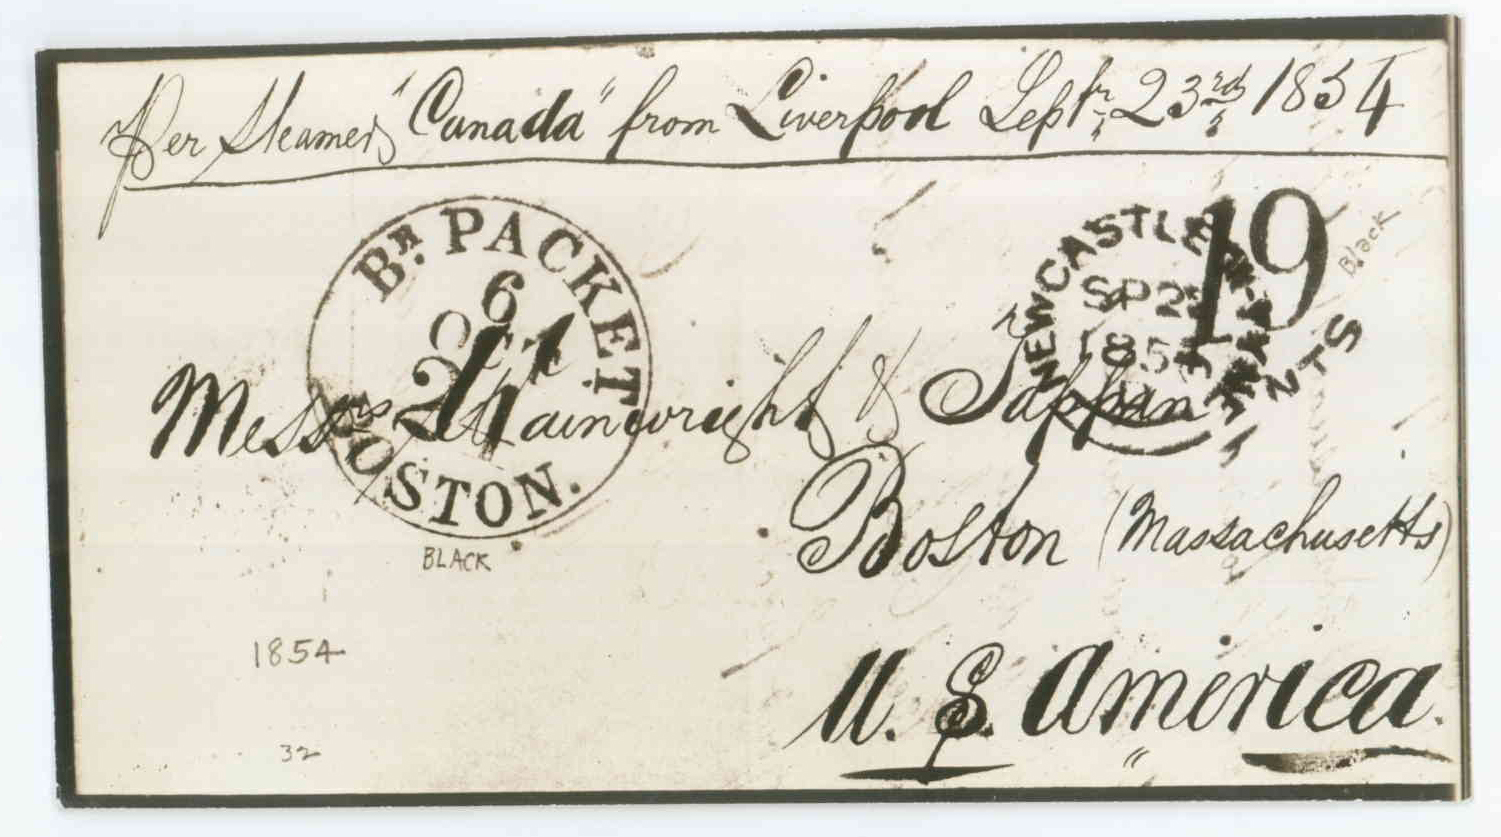 Per Steamer "Canada" from Liverpool Septr. 23rd 1854
Br. PACKET
6
OCT
24
BOSTON.
BLACK
NEWCASTLE
SP 2
185
19
Black
NTS
Messrs Wainwright & Tappan
Boston (Massachusetts)
U. S. America.
1854
32